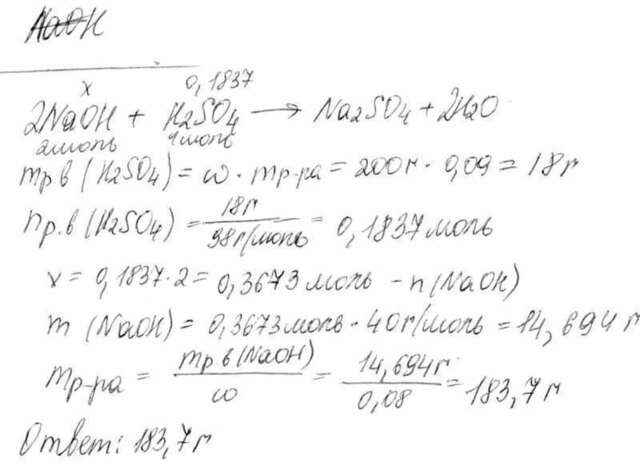 NaOH
x 0,1837
2NaOH + H2SO4 → Na2SO4 + 2H2O
2моль 1моль
mр.в (H2SO4) = ω · mр-ра = 200г · 0,09 = 18г
nр.в (H2SO4) = 18г / 98г/моль = 0,1837моль
x = 0,1837 · 2 = 0,3673 моль - n(NaOH)
m (NaOH) = 0,3673моль · 40г/моль = 14,694 г
mр-ра = mр.в (NaOH) / ω = 14,694г / 0,08 = 183,7г
Ответ: 183,7г